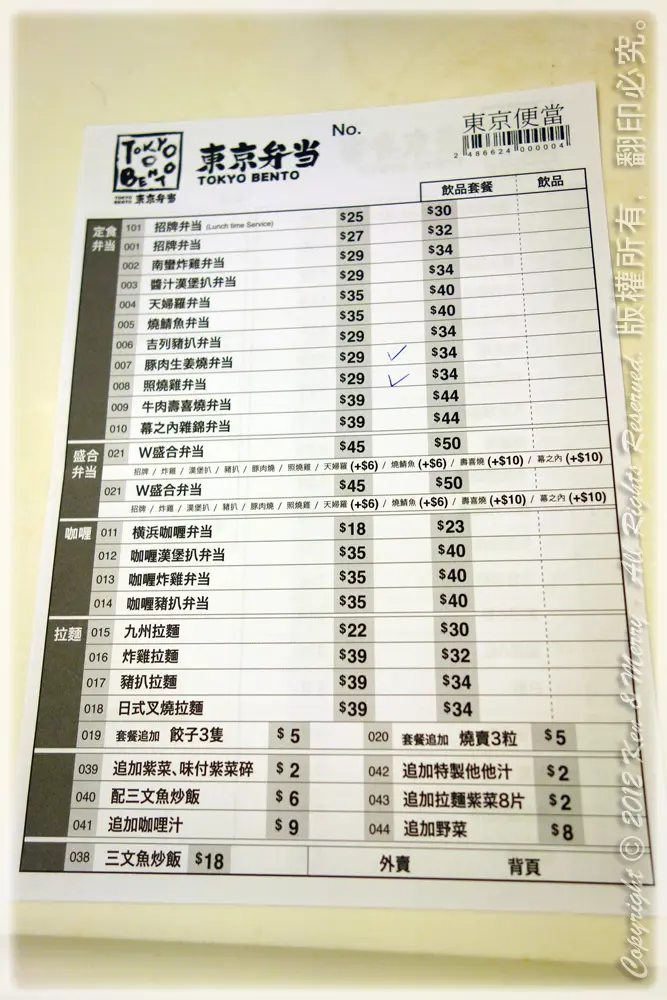 No.
東京便當
2 486624 000004
TOKYO BENTO
TOKYO BENTO 東京弁当
東京弁当
TOKYO BENTO
飲品套餐 飲品
定食弁当
101 招牌弁当 (Lunch time Service) $25 $30
001 招牌弁当 $27 $32
002 南蠻炸雞弁当 $29 $34
003 醬汁漢堡扒弁当 $29 $34
004 天婦羅弁当 $35 $40
005 燒鯖魚弁当 $35 $40
006 吉列豬扒弁当 $29 $34
007 豚肉生姜燒弁当 $29 $34
008 照燒雞弁当 $29 $34
009 牛肉壽喜燒弁当 $39 $44
010 幕之內雜錦弁当 $39 $44
盛合弁当
021 W盛合弁当 $45 $50
招牌 / 炸雞 / 漢堡扒 / 豬扒 / 豚肉燒 / 照燒雞 / 天婦羅 (+$6) / 燒鯖魚 (+$6) / 壽喜燒 (+$10) / 幕之內 (+$10)
021 W盛合弁当 $45 $50
招牌 / 炸雞 / 漢堡扒 / 豬扒 / 豚肉燒 / 照燒雞 / 天婦羅 (+$6) / 燒鯖魚 (+$6) / 壽喜燒 (+$10) / 幕之內 (+$10)
咖喱
011 横浜咖喱弁当 $18 $23
012 咖喱漢堡扒弁当 $35 $40
013 咖喱炸雞弁当 $35 $40
014 咖喱豬扒弁当 $35 $40
拉麵
015 九州拉麵 $22 $30
016 炸雞拉麵 $39 $32
017 豬扒拉麵 $39 $34
018 日式叉燒拉麵 $39 $34
019 套餐追加 餃子3隻 $5 020 套餐追加 燒賣3粒 $5
039 追加紫菜、味付紫菜碎 $2 042 追加特製他他汁 $2
040 配三文魚炒飯 $6 043 追加拉麵紫菜8片 $2
041 追加咖哩汁 $9 044 追加野菜 $8
038 三文魚炒飯 $18 外賣 背頁
Copyright © 2012 Ken & Merry. All Rights Reserved. 版權所有，翻印必究。